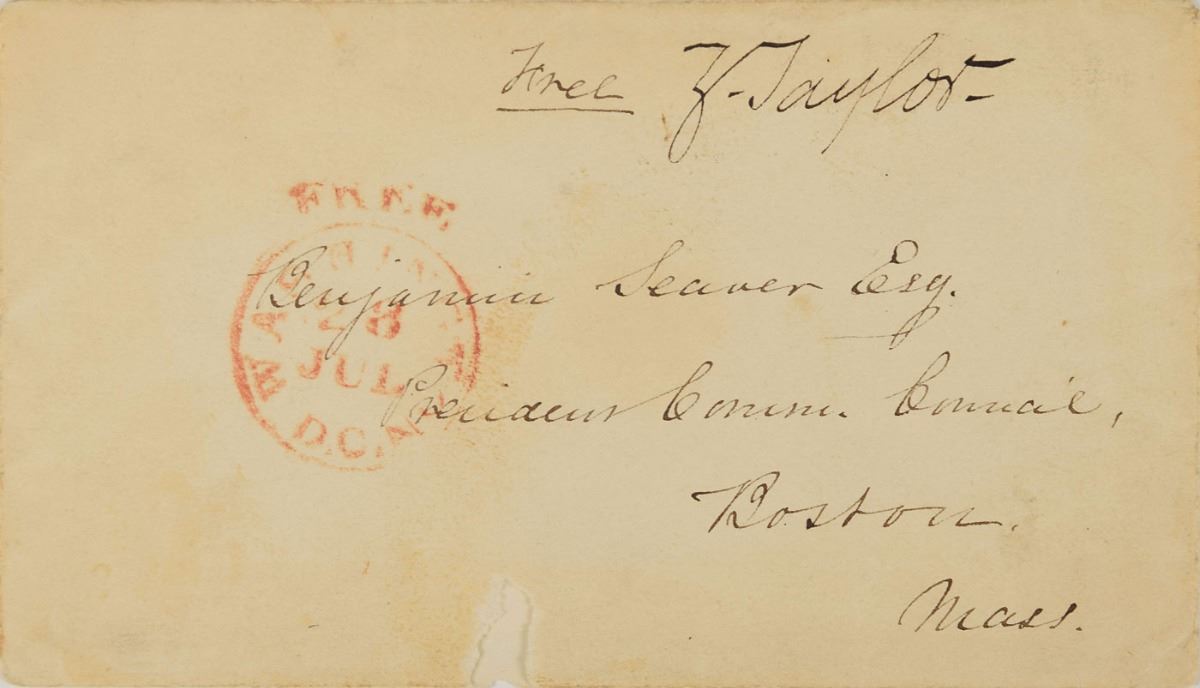 Free Z. Taylor
FREE
WASHINGTON
28
JUL
D.C.
Benjamin Seaver Esq.
President Comm. Council,
Boston.
Mass.